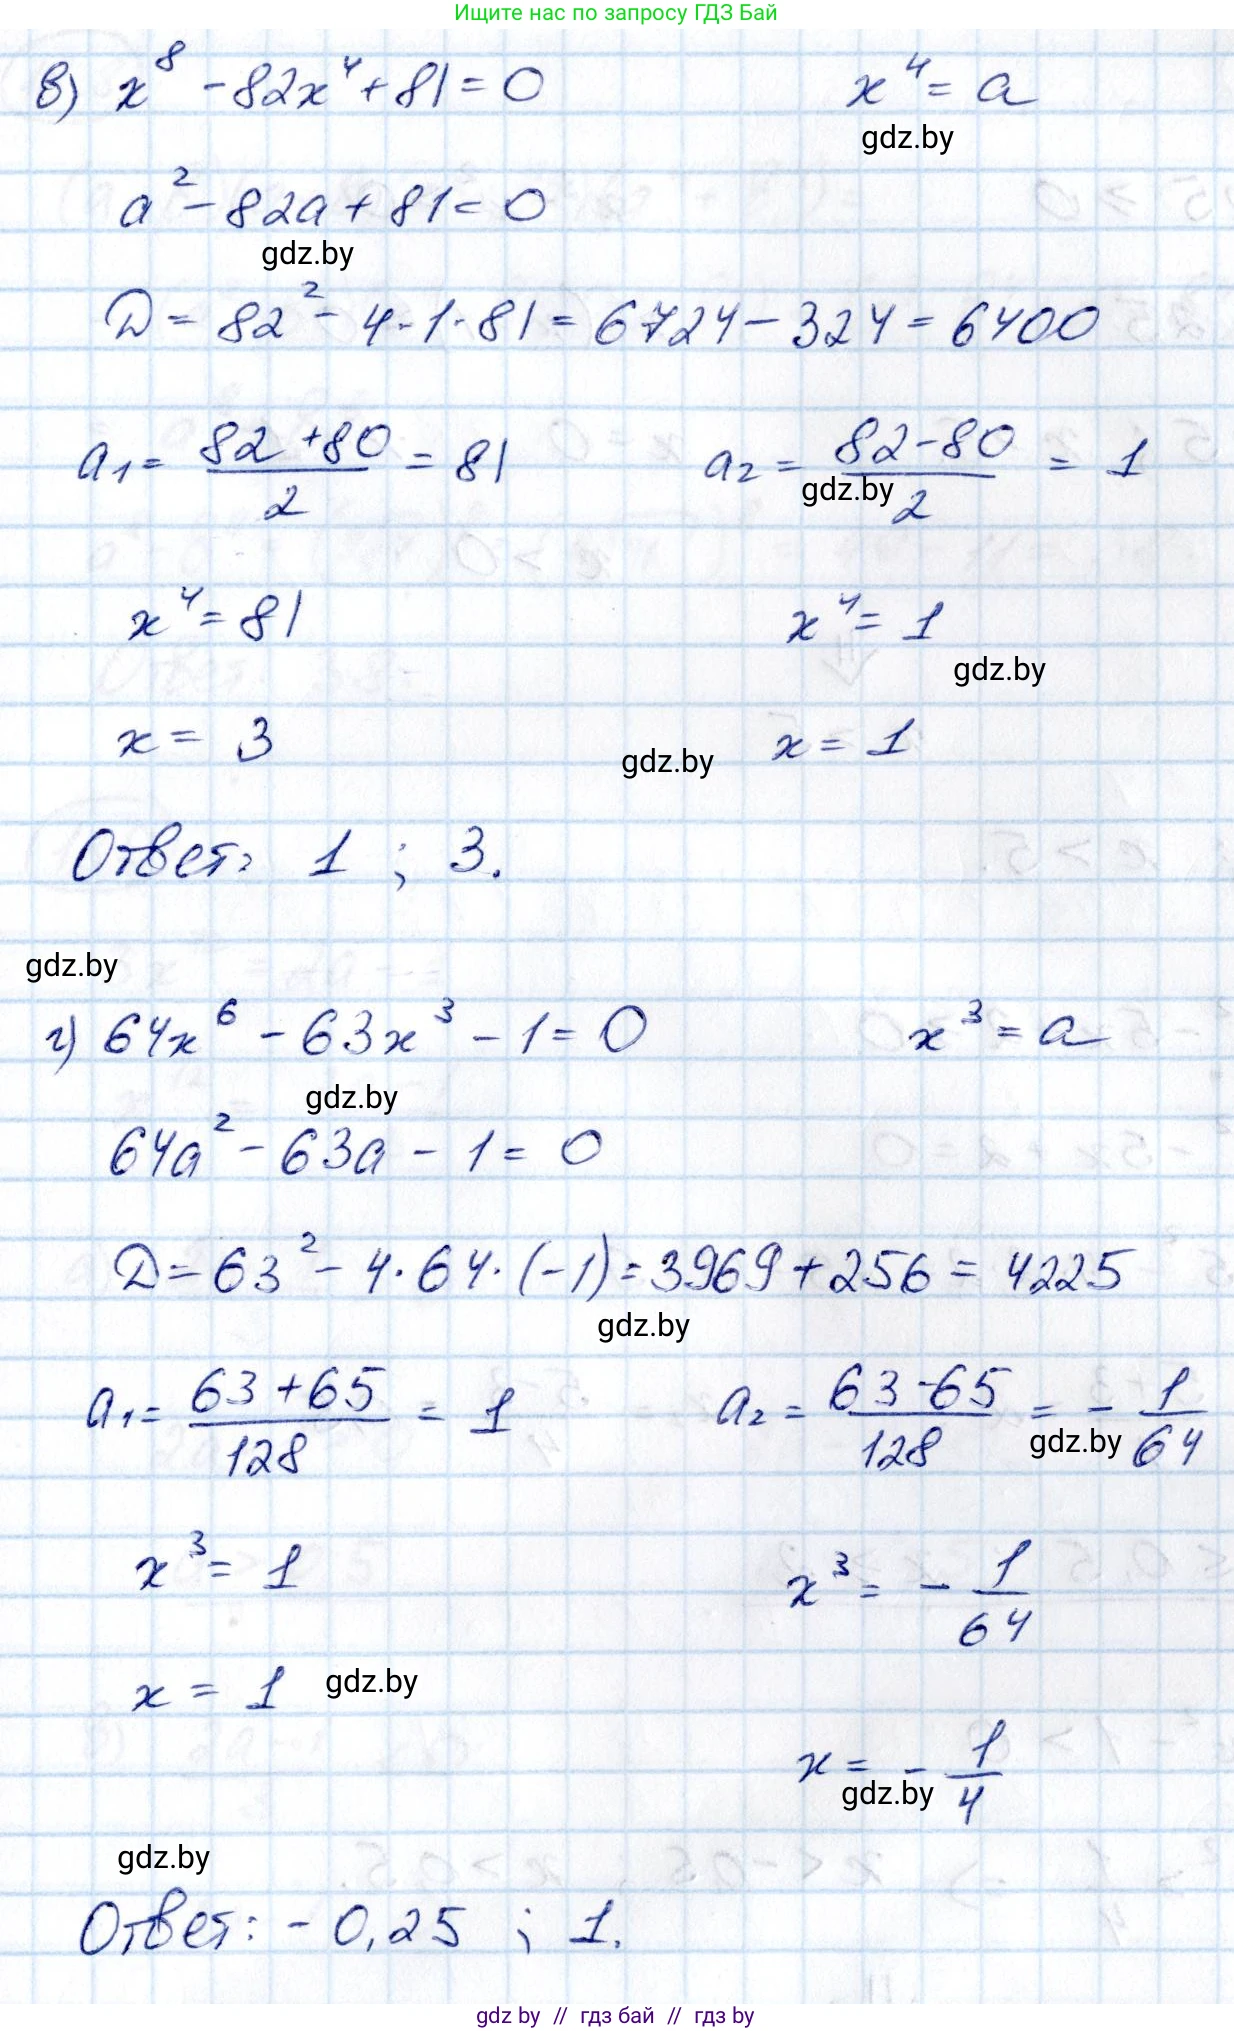 Ищите нас по запросу ГДЗ Бай
в) x⁸ - 82x⁴ + 81 = 0 x⁴ = a
gdz.by
a² - 82a + 81 = 0
gdz.by
D = 82² - 4·1·81 = 6724 - 324 = 6400
a₁ = (82 + 80)/2 = 81 a₂ = (82 - 80)/2 = 1
gdz.by
x⁴ = 81 x⁴ = 1
gdz.by
x = 3 x = 1
gdz.by
Ответ: 1 ; 3.
gdz.by
г) 64x⁶ - 63x³ - 1 = 0 x³ = a
gdz.by
64a² - 63a - 1 = 0
D = 63² - 4·64·(-1) = 3969 + 256 = 4225
gdz.by
a₁ = (63 + 65)/128 = 1 a₂ = (63 - 65)/128 = - 1/64
gdz.by
x³ = 1 x³ = - 1/64
x = 1 gdz.by
x = - 1/4
gdz.by
gdz.by
Ответ: - 0,25 ; 1.
gdz by // гдз бай // гдз by